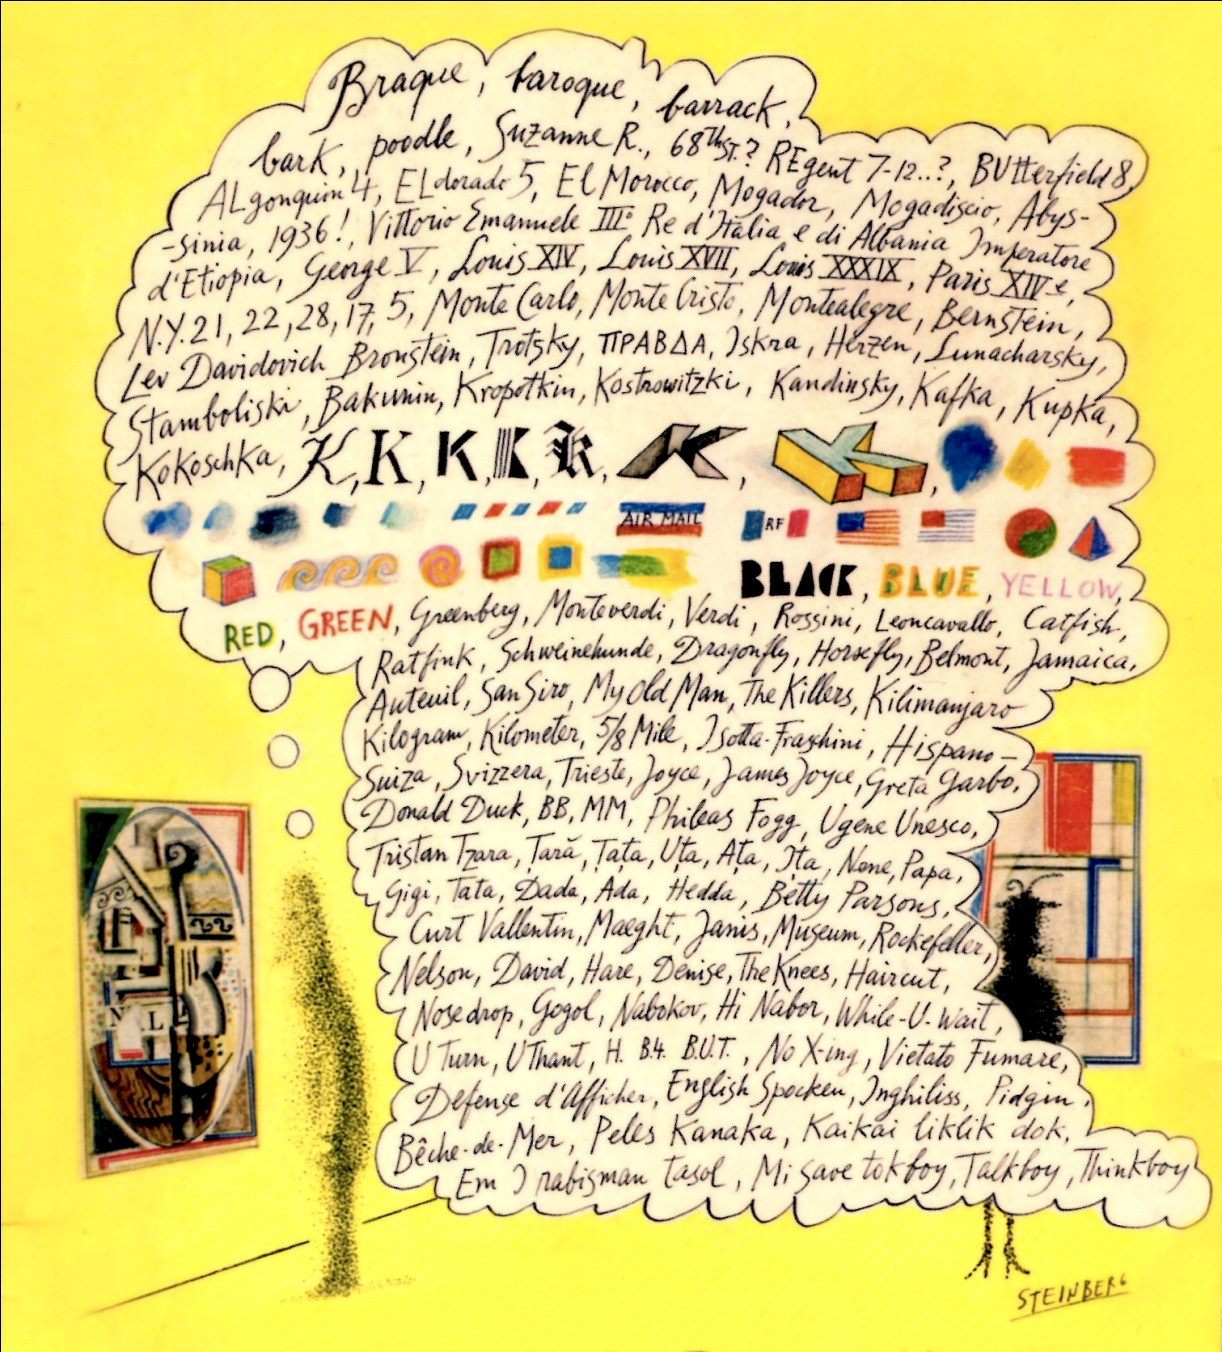 Braque, baroque, barrack,
bark, poodle, Suzanne R., 68th St.? REgent 7-12..?, BUtterfield 8,
ALgonquin 4, ELdorado 5, El Morocco, Mogador, Mogadiscio, Abys-
-sinia, 1936!, Vittorio Emanuele III° Re d'Italia e di Albania Imperatore
d'Etiopia, George V, Louis XIV, Louis XVII, Louis XXXIX, Paris XIVe,
N.Y. 21, 22, 28, 17, 5, Monte Carlo, Monte Cristo, Montealegre, Bernstein,
Lev Davidovich Bronstein, Trotsky, ΠPABΔA, Iskra, Herzen, Lunacharsky,
Stamboliski, Bakunin, Kropotkin, Kostrowitzki, Kandinsky, Kafka, Kupka,
Kokoschka, K, K, K, K, K, K, K,
AIR MAIL RF
BLACK, BLUE, YELLOW,
RED, GREEN, Greenberg, Monteverdi, Verdi, Rossini, Leoncavallo, Catfish,
Ratfink, Schweinehunde, Dragonfly, Horsefly, Belmont, Jamaica,
Auteuil, San Siro, My Old Man, The Killers, Kilimanjaro
Kilogram, Kilometer, 5/8 Mile, Isotta-Fraschini, Hispano-
Suiza, Svizzera, Trieste, Joyce, James Joyce, Greta Garbo,
Donald Duck, BB, MM, Phileas Fogg, Ugene Unesco,
Tristan Tzara, Ţară, Ţaţa, Uţa, Aţa, Iţa, Nene, Papa,
Gigi, Tata, Dada, Ada, Hedda, Betty Parsons,
Curt Vallentin, Maeght, Janis, Museum, Rockefeller,
Nelson, David, Hare, Denise, The Knees, Haircut,
Nosedrop, Gogol, Nabokov, Hi Nabor, While-U-Wait,
U Turn, U Thant, H. B.4. B.U.T., No X-ing, Vietato Fumare,
Défense d'Afficher, English Spocken, Inghiliss, Pidgin,
Bêche-de-Mer, Peles Kanaka, Kaikai liklik dok,
Em I rabisman tasol, Mi save tokboy, Talkboy, Thinkboy
STEINBERG